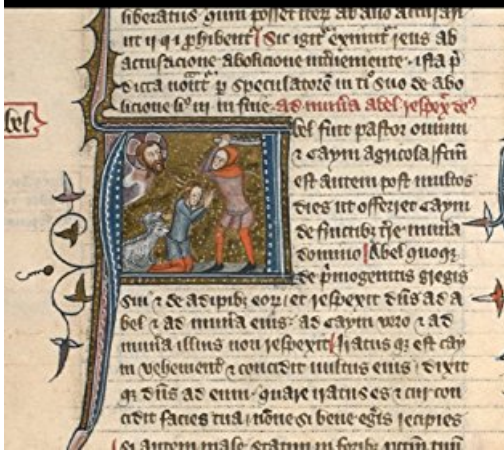 liberatus q̃uum posset iteꝝ ab alio accusari
ut ii q̇ i ꝓhibent Sic igit̃ eximit̃ reus ab
accusacione abolicione interveniente ista p̄
dicta speculatore in ti suo de abo
licione in fine ad munera abel respex̃ de9
bel
bel fuit pastor ouium
⁊ caym agricola
est autem post multos
dies ut offeret caym
de fructib; munera
domino Abel quoq;
de p̃mogenitis gregis
sui ⁊ de adipib; eoꝝ et respexit dñs ad a
bel ⁊ ad munera eius ad caym vero ⁊ ad
munera illius non respexit Iratus q; est cay
m vehement̃ ⁊ concidit uultus eius dixit
q; dñs ad eum quare iratus es ⁊ cur con
cidit facies tua nõne si bene egeris recipies
si autem male statim in forib;